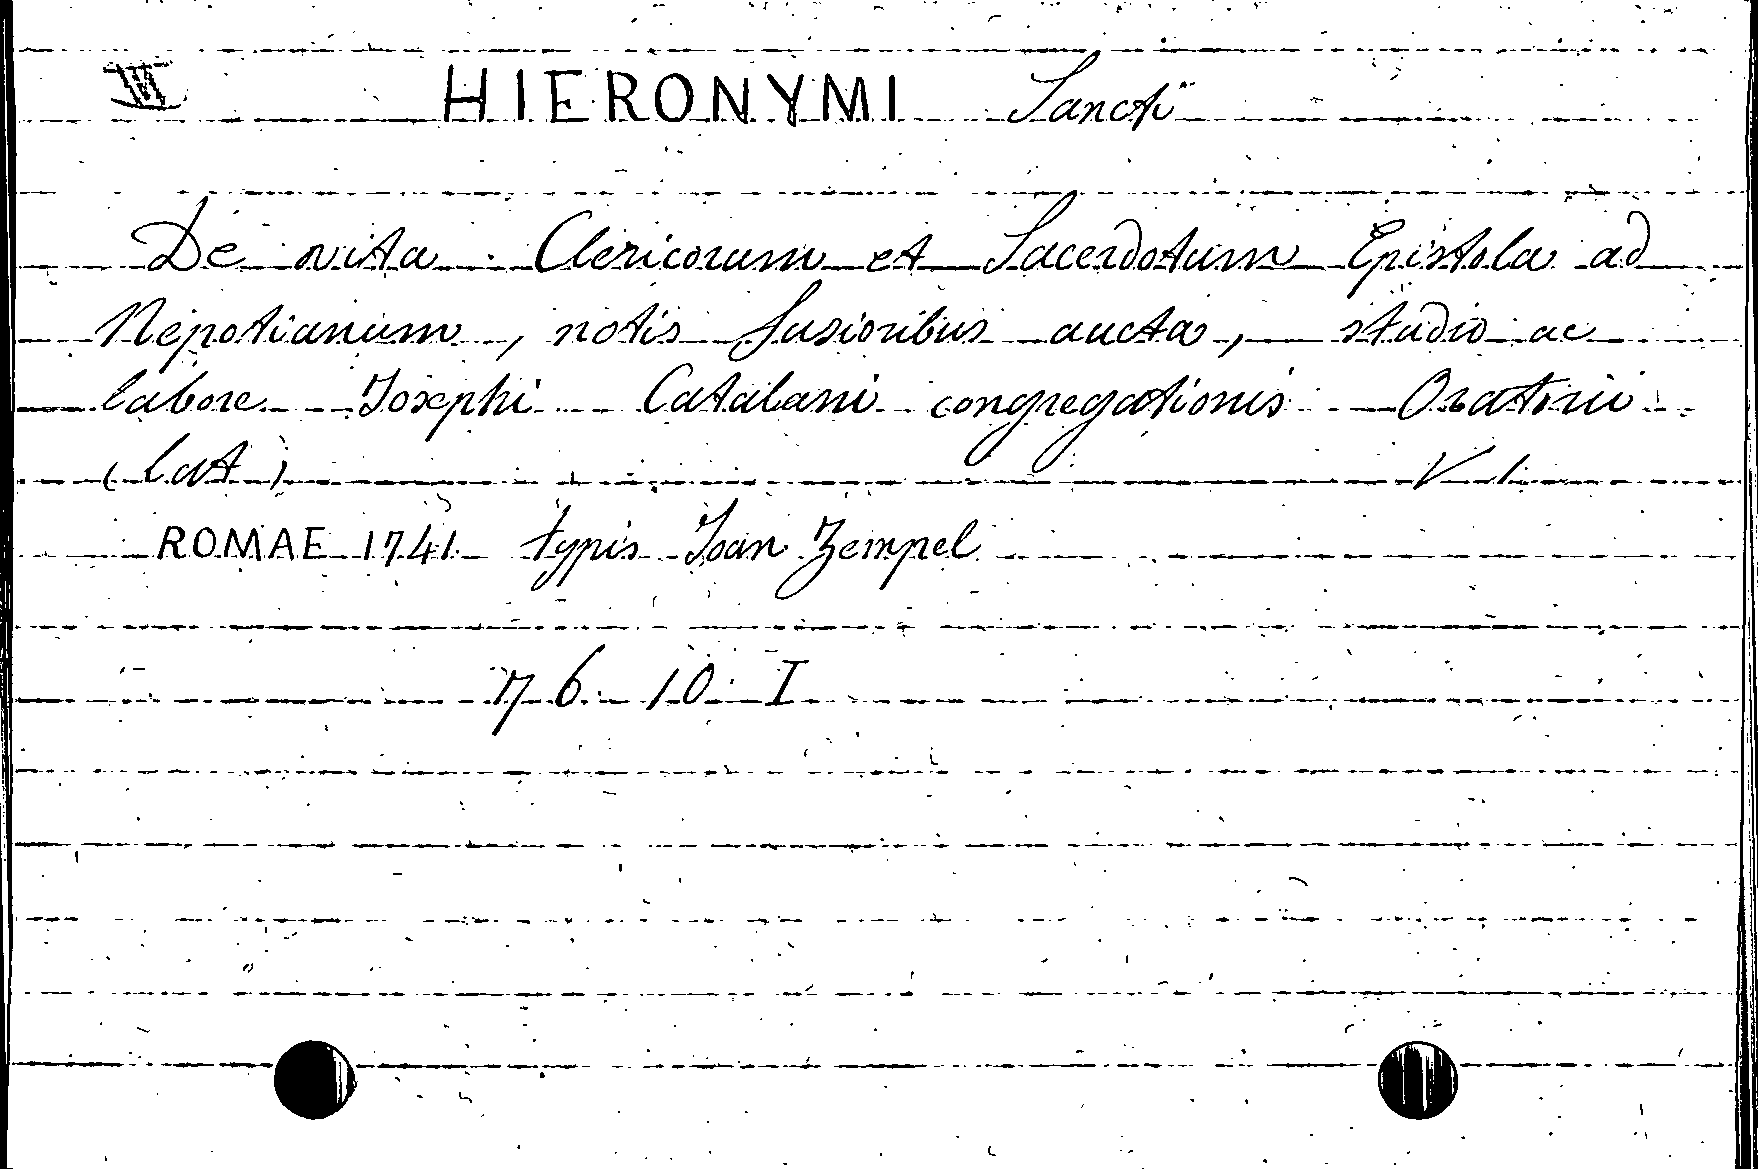 HIERONYMI Sancti
De vita Clericorum et Sacerdotum Epistola ad
Nepotianum, notis fusioribus aucta, studio ac
labore Josephi Catalani congregationis Oratorii
(lat) V 1
ROMAE 1741 typis Joan Zempel
76 10 I